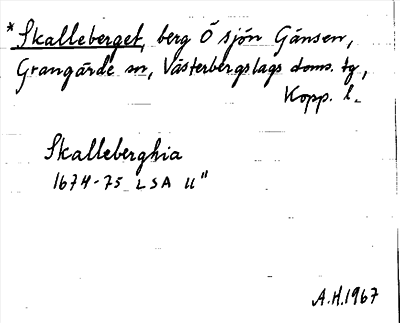 * Skalleberget, berg Ö sjön Gänsen,
Grangärde sn, Västerbergslags doms. tg,
Kopp. l.
Skalleberghia
1674-75 LSA U"
A.H.1967